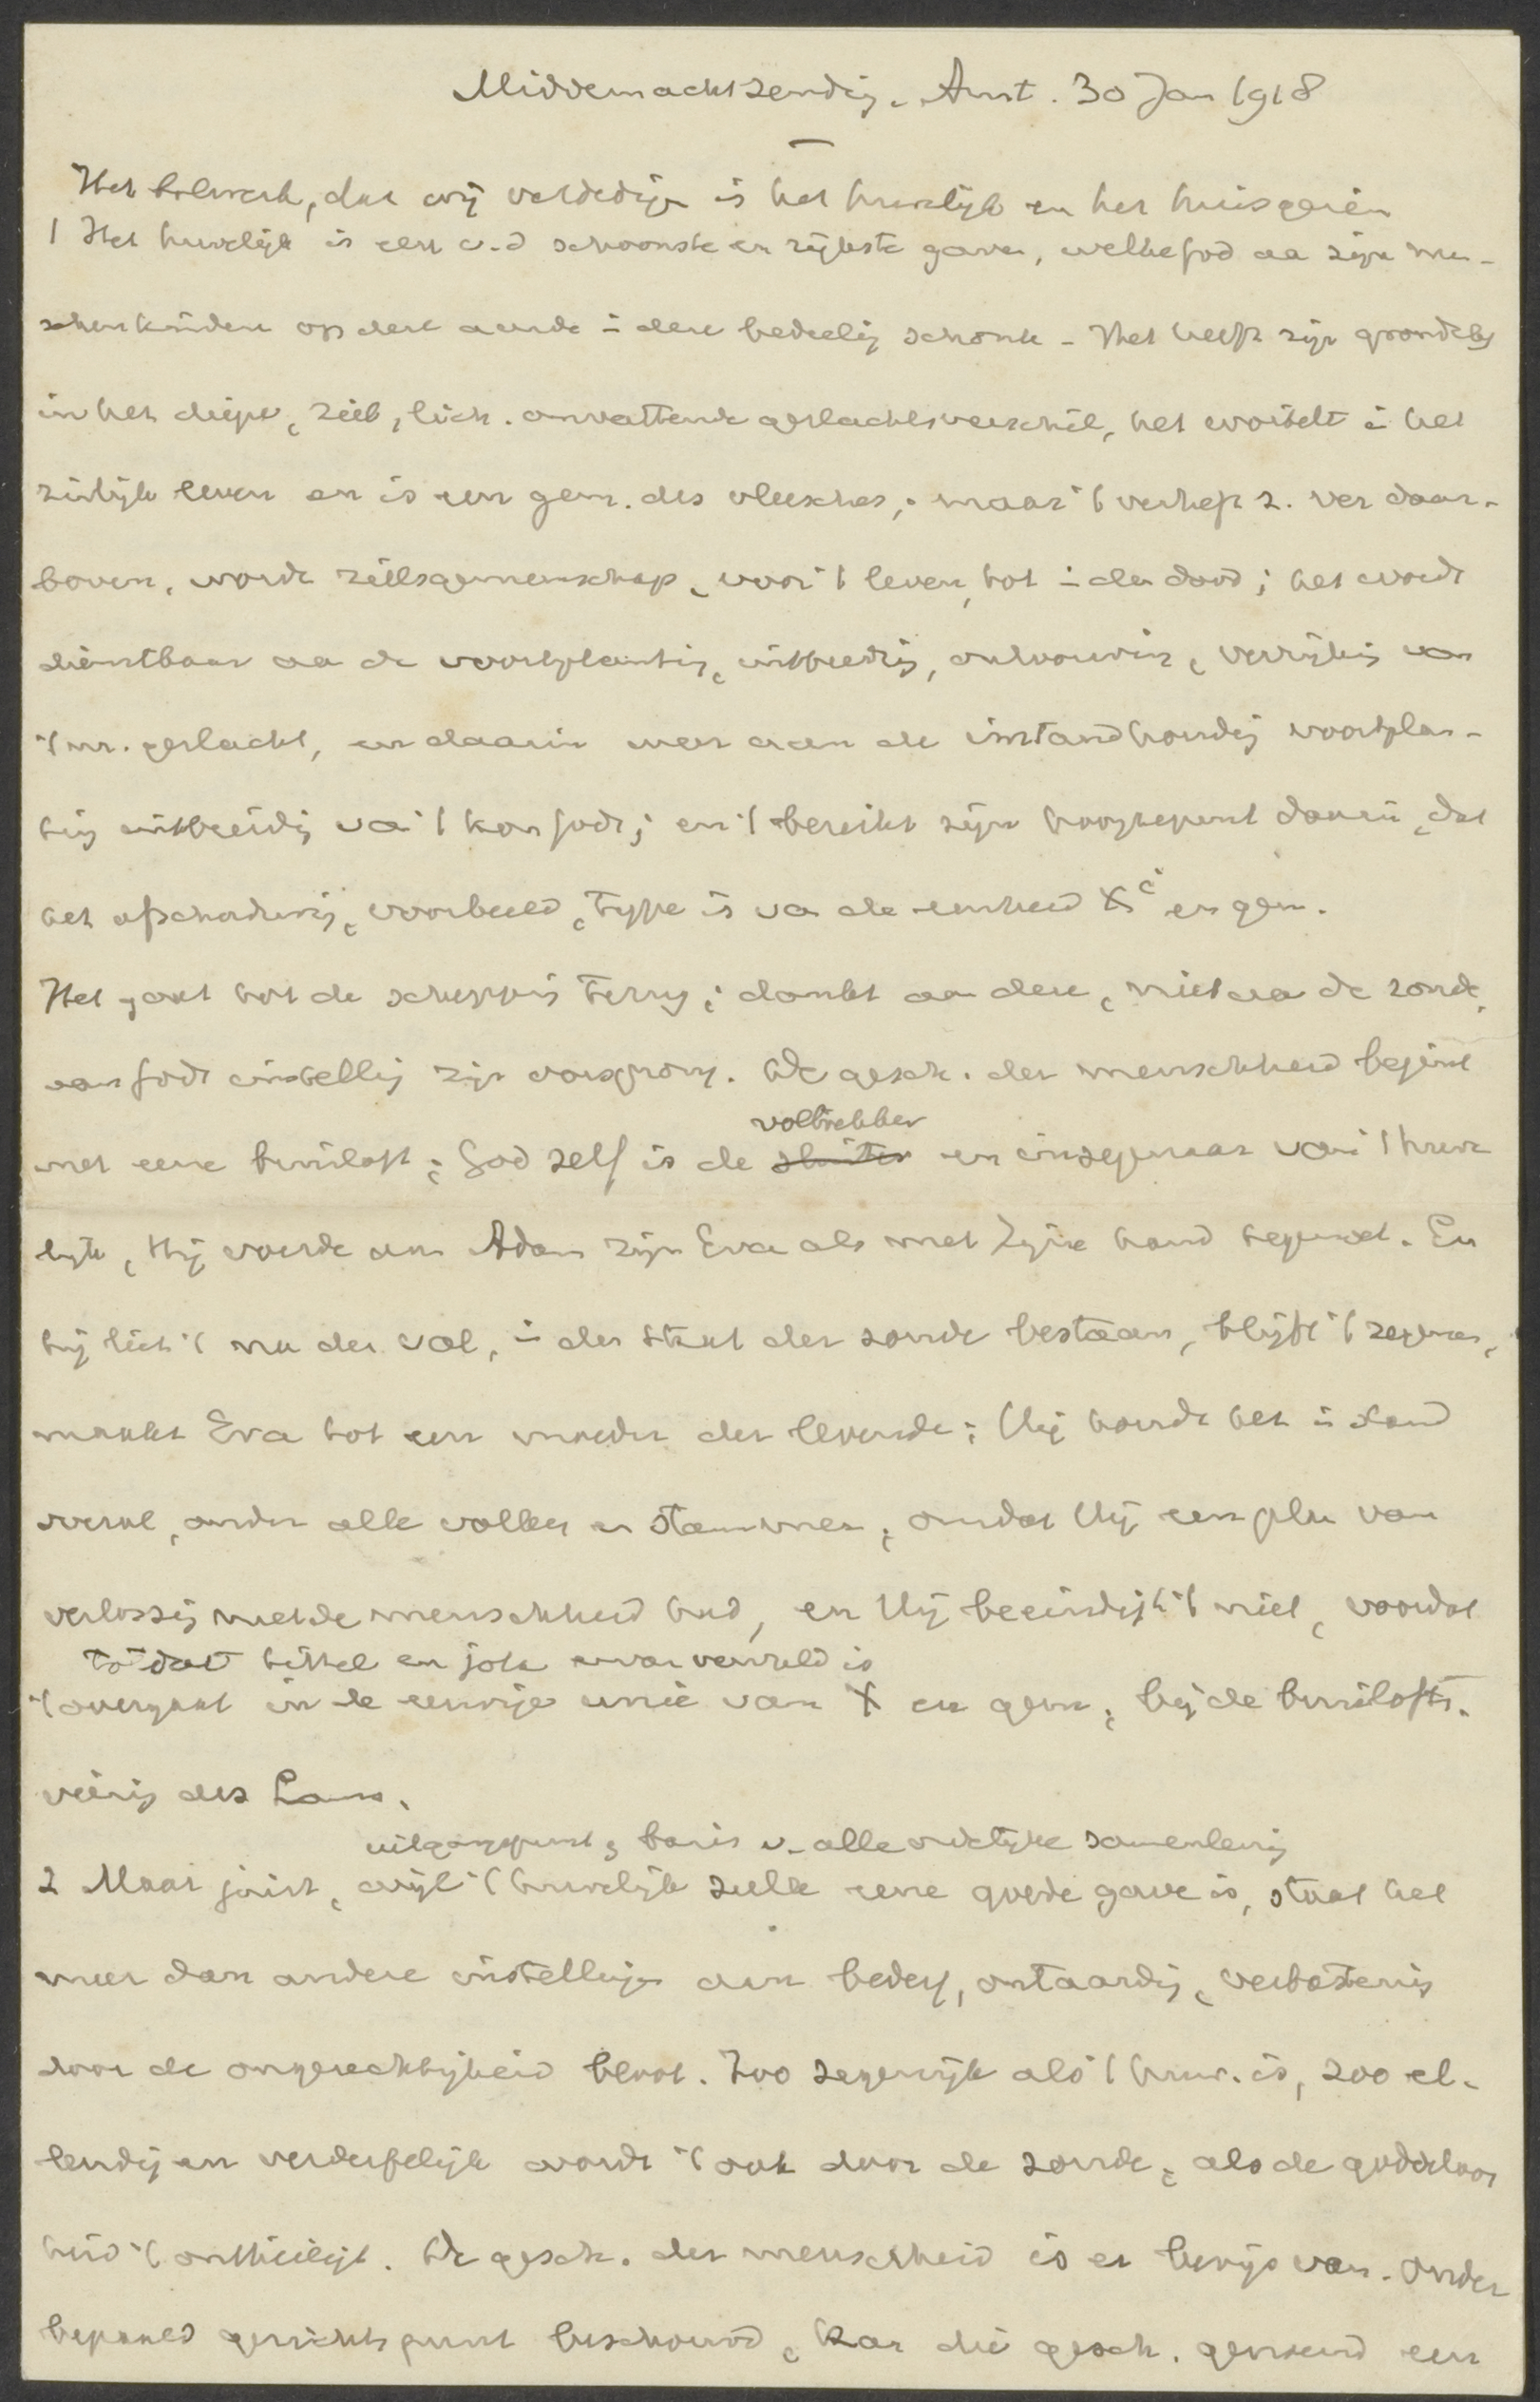 Middernachtzending. Amst. 30 Jan 1918
Het bolwerk, dat wij verdedigen is het huwelijk en het huisgezin
1 Het huwelijk is een v. d schoonste en rijkste gaven, welke God aa zijn men-
schenkinderen op deze aarde in deze bedeelig schonk - Het heeft zijn grondslag
in het diepe, ziel, lich. omvattende geslachtsverschil, het wortelt in het
zinlijk leven en is een gem. des vleesches; maar 't verheft z. ver daar-
boven, wordt zielsgemeenschap, voor 't leven, tot in den dood; het wordt
dienstbaar aa de voortplanting, uitbreidig, ontvouwing, verrijking van
't m. geslacht, en daarin weer aan de instandhoudig voortplan-
ting uitbreidig va 't kon Gods; en 't bereikt zijn hoogtepunt daarin, dat
het afschaduwig, voorbeeld, type is va de eenheid X en gem.
Het gaat tot de schepping terug; dankt aan deze, niet aa de zonde,
aan Gods instellig zijn oorsprong. De gesch. der menschheid begint
voltrekker
met eene bruiloft; God zelf is de sluiter en inzegenaar van 't huwe
lijk, Hij voerde aan Adam zijn Eva als met Zijne hand tegemoet. En
hij liet 't na den val, in den staat der zonde bestaan, blijft 't zegenen,
maakt Eva tot een moeder der levende; Hij houdt het in stand
overal, onder alle volken en stammen, omdat Hij een plan van
verlossig met de menschheid had, en Hij beeindigt 't niet, voordat
totdat tittel en jota ervan vervuld is
't overgaat in de eeuwige unie van X en gem, bij de bruilofts-
vierig des Lams.
uitgangspunt, basis v. alle zedelijke samenlevig
2 Maar juist, wijl 't huwelijk zulk eene goede gave is, staat het
meer dan andere instellingen aan bederf, ontaardig, verbastering
door de ongerechtigheid bloot. Zoo zegenrijk als 't huw. is, zoo el-
lendig en verderfelijk wordt 't ook door de zonde, als de goddeloos
heid 't ontheiligt. De gesch. der menschheid is er bewijs van. Onder
bepaald gezichtspunt beschouwd, kan die gesch. genoemd een